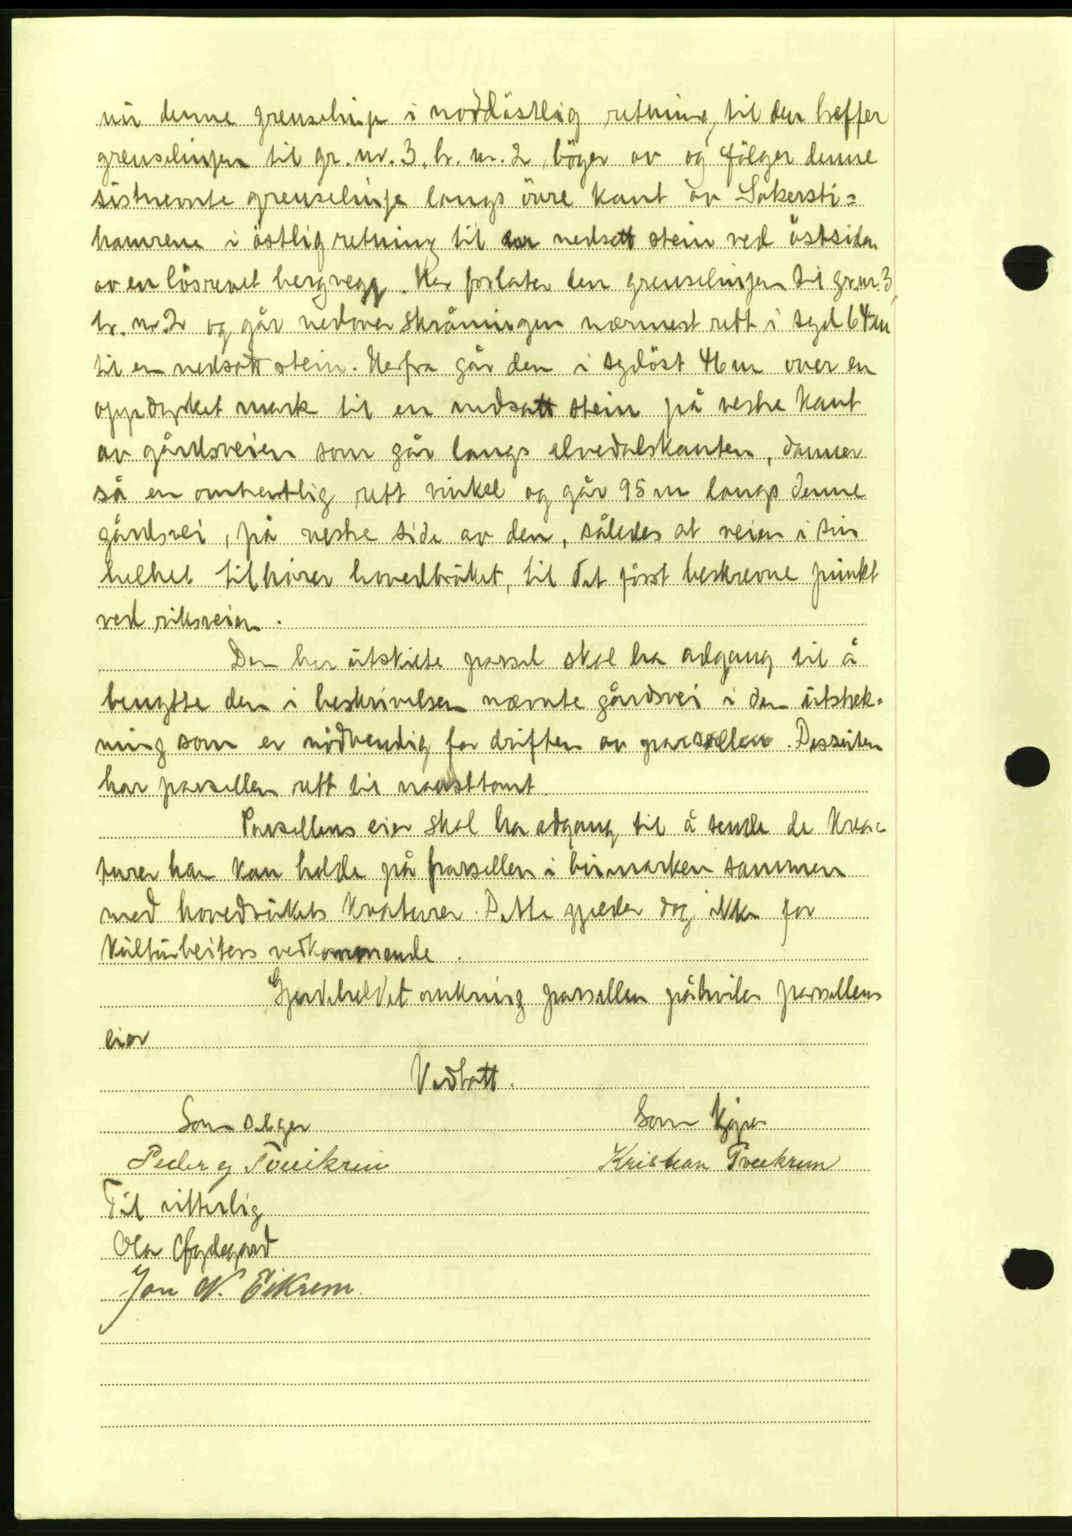 nu denne grenselinje i nordöstlig retning, til den treffer
grenselinjen til gr. nr. 3, br. nr. 2, böger av og fölger denne
sistnevnte grenselinje langs övre kant av
hamrene i östlig retning til en nedsatt stein ved östsiden
av en lösrevet bergvegg. Her forlater den grenselinjen til gr.nr. 3,
br. nr. 2 og går nedover skråningen nærmest rett i syd 64 m
til en nedsatt stein. Herfra går den i sydöst 46 m over en
oppdyrket mark til en nedsatt stein på vestre kant
av gårdsveien som går langs elvedalskanten, danner
så en omtrentlig rett vinkel og går 95 m langs denne
gårdsvei, på vestre side av den, således at veien i sin
helhet tilhörer hovedbruket, til det först beskrevne punkt
ved riksveien.
Den her utskilte parsel skal ha adgang til å
benytte den i beskrivelsen nævnte gårdsvei i den utstrek-
ning som er nödvendig for driften av parsellen. Dessuten
har parsellen rett til nausttomt.
Parsellens eier skal ha adgang til å sende de krea-
turer han kan holde på parsellen i bumarken sammen
med hovedbrukets kreaturer. Dette gjelder dog ikke for
kulturbeiters vedkommende.
Gjerdeholdet omkring parsellen påhviler parsellens
eier.
Vedtatt.
Som selger Som kjöper
Peder Tveeikrem Kristian Tveekrem
Til vitterlighet
Ola
Jon N. Eikrem.